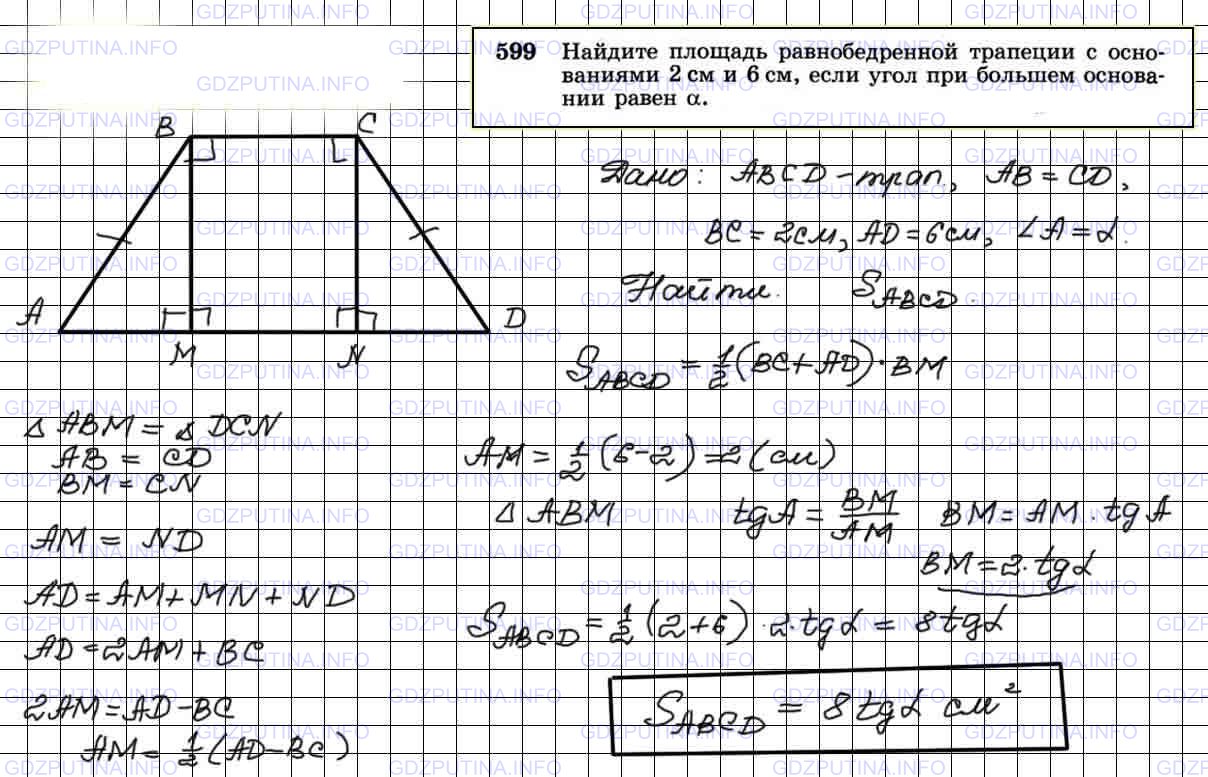 599 Найдите площадь равнобедренной трапеции с осно-
ваниями 2 см и 6 см, если угол при большем основа-
нии равен α.
B C
A M N D
Дано: ABCD - трап., AB = CD,
BC = 2 см, AD = 6 см, ∠A = α.
Найти. S_ABCD.
S_ABCD = 1/2 (BC + AD) · BM
△ ABM = △ DCN
AB = CD
BM = CN
AM = ND
AD = AM + MN + ND
AD = 2AM + BC
2AM = AD - BC
AM = 1/2 (AD - BC)
AM = 1/2 (6 - 2) = 2 (см)
△ ABM tg A = BM/AM BM = AM · tg A
BM = 2 · tg α
S_ABCD = 1/2 (2 + 6) · 2 · tg α = 8 tg α
S_ABCD = 8 tg α см²
GDZPUTINA.INFO